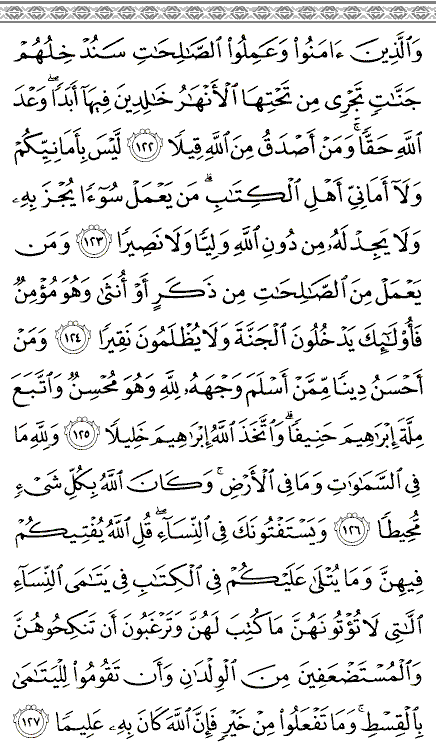 وَالَّذِينَ ءَامَنُوا۟ وَعَمِلُوا۟ الصَّـٰلِحَـٰتِ سَنُدْخِلُهُمْ
جَنَّـٰتٍ تَجْرِى مِن تَحْتِهَا الْأَنْهَـٰرُ خَـٰلِدِينَ فِيهَآ أَبَدًا ۖ وَعْدَ
اللَّهِ حَقًّا ۚ وَمَنْ أَصْدَقُ مِنَ اللَّهِ قِيلًا ١٢٢ لَّيْسَ بِأَمَانِيِّكُمْ
وَلَآ أَمَانِىِّ أَهْلِ الْكِتَـٰبِ ۗ مَن يَعْمَلْ سُوٓءًا يُجْزَ بِهِۦ
وَلَا يَجِدْ لَهُۥ مِن دُونِ اللَّهِ وَلِيًّا وَلَا نَصِيرًا ١٢٣ وَمَن
يَعْمَلْ مِنَ الصَّـٰلِحَـٰتِ مِن ذَكَرٍ أَوْ أُنثَىٰ وَهُوَ مُؤْمِنٌ
فَأُو۟لَـٰٓئِكَ يَدْخُلُونَ الْجَنَّةَ وَلَا يُظْلَمُونَ نَقِيرًا ١٢٤ وَمَنْ
أَحْسَنُ دِينًا مِّمَّنْ أَسْلَمَ وَجْهَهُۥ لِلَّهِ وَهُوَ مُحْسِنٌ وَاتَّبَعَ
مِلَّةَ إِبْرَٰهِيمَ حَنِيفًا ۗ وَاتَّخَذَ اللَّهُ إِبْرَٰهِيمَ خَلِيلًا ١٢٥ وَلِلَّهِ مَا
فِى السَّمَـٰوَٰتِ وَمَا فِى الْأَرْضِ ۚ وَكَانَ اللَّهُ بِكُلِّ شَىْءٍ
مُّحِيطًا ١٢٦ وَيَسْتَفْتُونَكَ فِى النِّسَآءِ ۖ قُلِ اللَّهُ يُفْتِيكُمْ
فِيهِنَّ وَمَا يُتْلَىٰ عَلَيْكُمْ فِى الْكِتَـٰبِ فِى يَتَـٰمَى النِّسَآءِ
الَّـٰتِى لَا تُؤْتُونَهُنَّ مَا كُتِبَ لَهُنَّ وَتَرْغَبُونَ أَن تَنكِحُوهُنَّ
وَالْمُسْتَضْعَفِينَ مِنَ الْوِلْدَٰنِ وَأَن تَقُومُوا۟ لِلْيَتَـٰمَىٰ
بِالْقِسْطِ ۚ وَمَا تَفْعَلُوا۟ مِنْ خَيْرٍ فَإِنَّ اللَّهَ كَانَ بِهِۦ عَلِيمًا ١٢٧